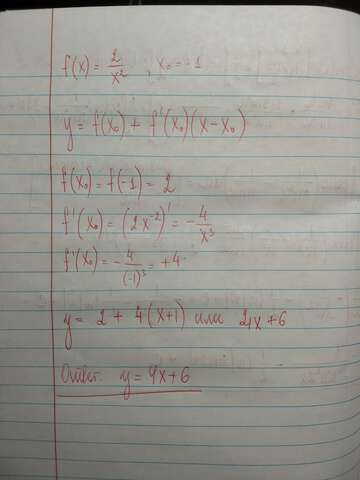 f(x) = 2/x² , x₀ = -1
y = f(x₀) + f'(x₀)(x - x₀)
f(x₀) = f(-1) = 2
f'(x₀) = (2x⁻²)' = -4/x³
f'(x₀) = -4/(-1)³ = +4
y = 2 + 4(x+1) или 4x+6
Ответ: y = 4x+6